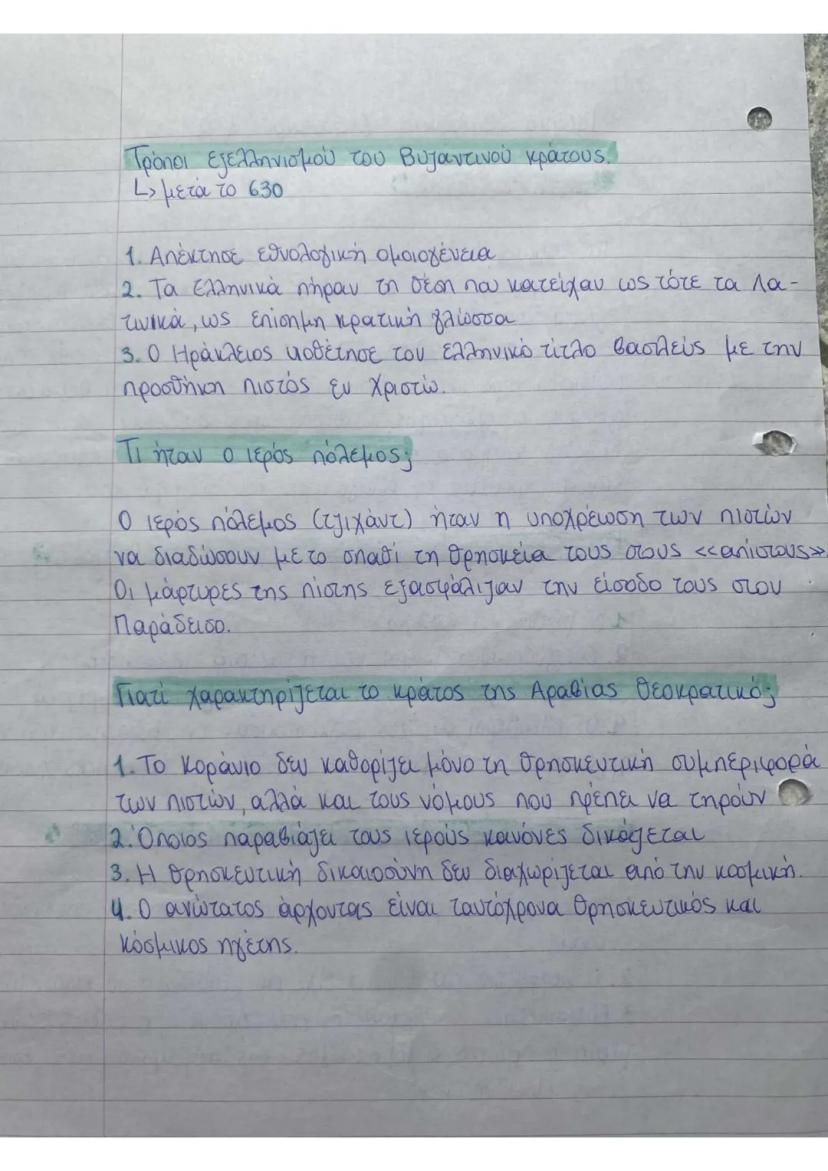 Τρόποι εξελληνισμού του Βυζαντινού κράτους.
↳ μετά το 630
1. Απέκτησε εθνολογική ομοιογένεια
2. Τα Ελληνικά πήραν τη θέση που κατείχαν ως τότε τα Λα-
τινικά, ως επίσημη κρατική γλώσσα
3. Ο Ηράκλειος υοθέτησε τον ελληνικό τίτλο βασιλεύς με την
προσθήκη πιστός εν Χριστώ.
Τι ήταν ο ιερός πόλεμος;
Ο ιερός πόλεμος (τζιχάντ) ήταν η υποχρέωση των πιστών
να διαδώσουν με το σπαθί τη θρησκεία τους στους <<απίστους>>.
Οι μάρτυρες της πίστης εξασφάλιζαν την είσοδο τους στον
Παράδεισο.
Γιατί χαρακτηρίζεται το κράτος της Αραβίας Θεοκρατικό;
1. Το Κοράνιο δεν καθορίζει μόνο τη θρησκευτική συμπεριφορά
των πιστών, αλλά και τους νόμους που πρέπει να τηρούν
2. Όποιος παραβιάζει τους ιερούς κανόνες δικάζεται
3. Η θρησκευτική δικαιοσύνη δεν διαχωρίζεται από την κοσμική.
4. Ο ανώτατος άρχοντας είναι ταυτόχρονα θρησκευτικός και
κόσμικος ηγέτης.